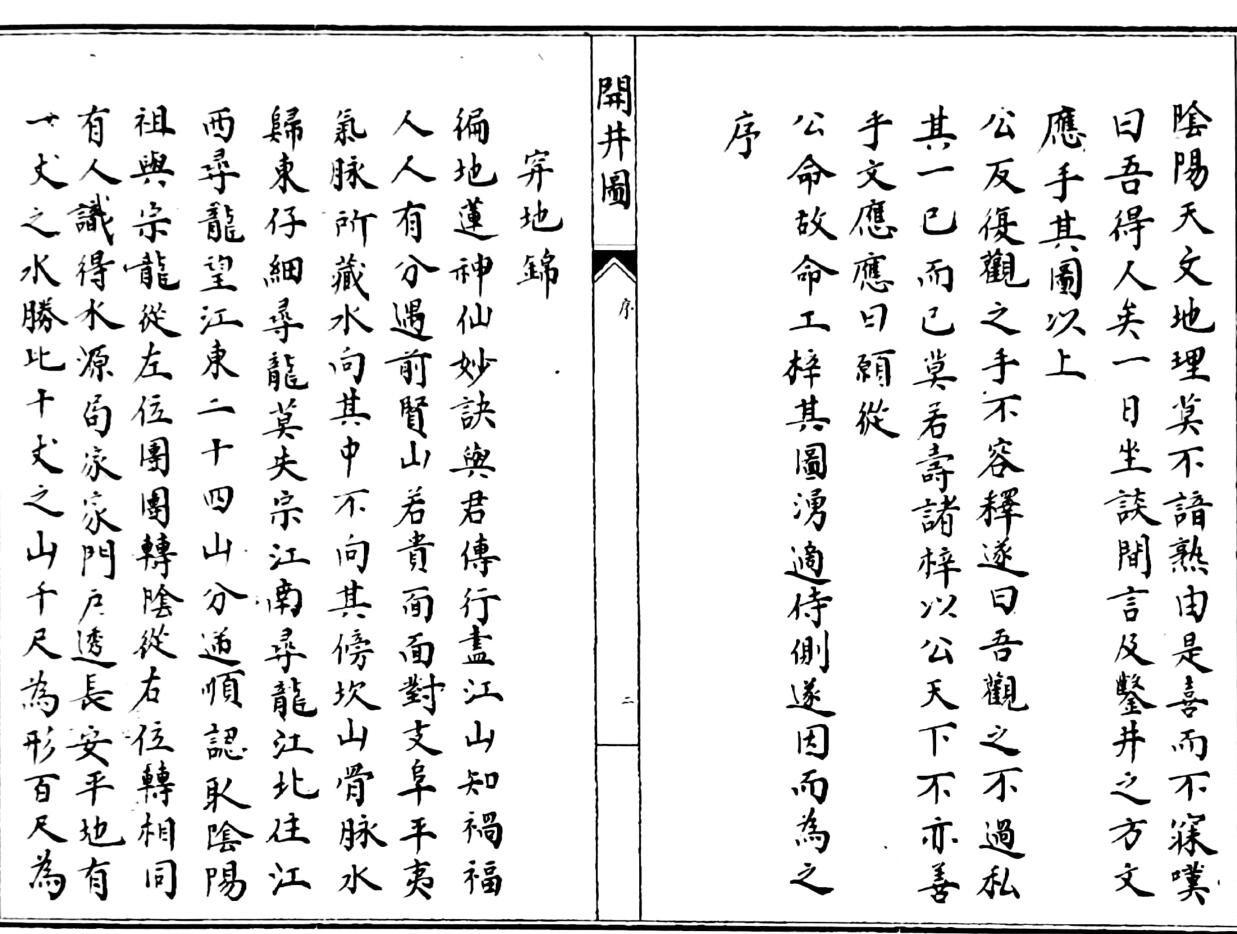 陰陽天文地理莫不諳熟由是喜而不寐嘆
曰吾得人矣一日坐談間言及鑿井之方文
應手其圖以上
公反復觀之手不容釋遂曰吾觀之不過私
其一已而已莫若壽諸梓以公天下不亦善
乎文應應曰願從
公命故命工梓其圖湧適侍側遂因而為之
序
開井圖
序
二
穽地錦
徧地蓮神仙妙訣與君傳行盡江山知禍福
人人有分遇前賢山若貴面面對支阜平夷
氣脉所藏水向其中不向其傍坎山骨脉水
歸東仔細尋龍莫失宗江南尋龍江北住江
西尋龍望江東二十四山分逆順認取陰陽
祖與宗龍從左位團團轉陰從右位轉相同
有人識得水源局家家門戶透長安平地有
一丈之水勝比十丈之山千尺為形百尺為